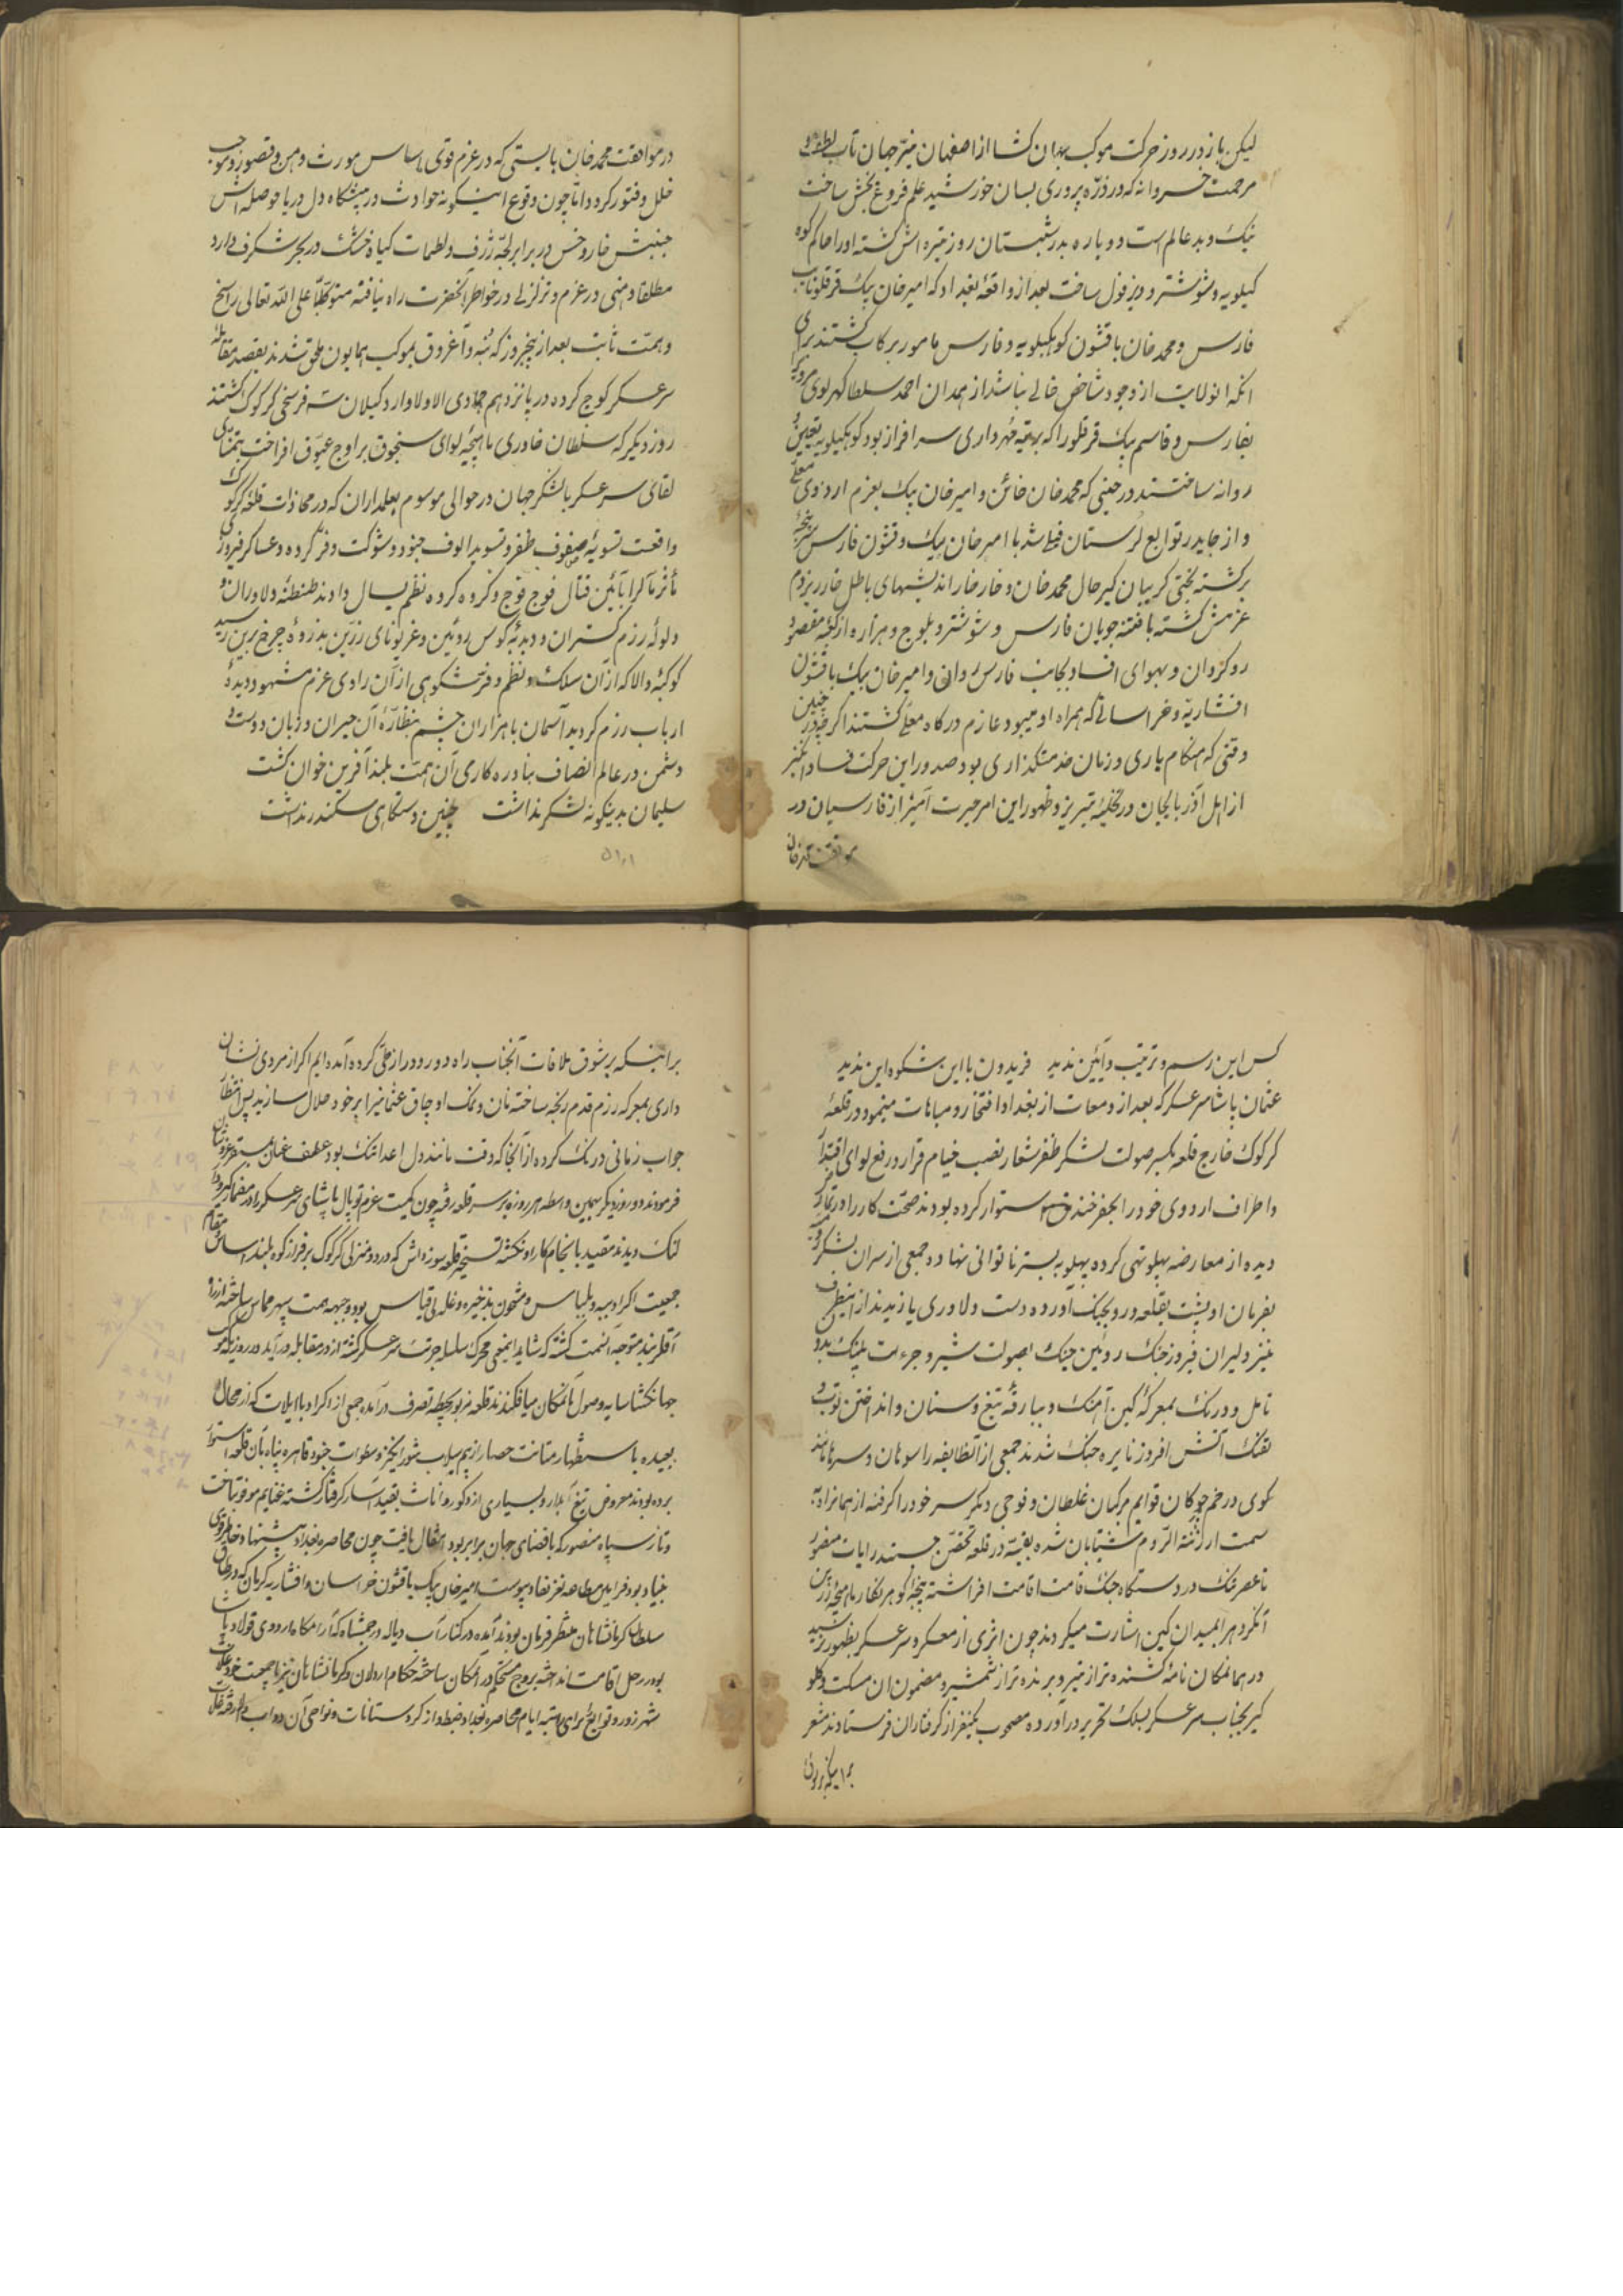 لیکن باز در روز حرکت موکب جهان کشا از اصفهان نیّر جهان تاب لطف و
مرحمت خسروانه که در ذرّه پروری بسان خورشید علم فروغ بخش ساخت
نیک و بد عالم است دوباره بدر شبستان روز تیره اش کشته او را حاکم کوه
کیلویه و شوشتر و دزفول ساخت بعد از واقعهٔ بغداد که امیر خان بیک قرقلو نایب
فارس و محمد خان با قشون کوهکیلویه و فارس مامور برکاب کشتند برای
انکه انولایت از وجود شاخص خالی نباشد از همدان احمد سلطان
بفارس و قاسم بیک قرقلو را که برتبهٔ مهرداری سرافراز بود کوهکیلویه تعیین و
روانه ساختند در حینی که محمد خان خائن و امیر خان بیک بعزم اردوی معلّی
و از جایدر توابع لرستان فیلی شد با امیر خان بیک و قشون فارس
برکشته بختی کریبان کیر حال محمد خان و خار خار اندیشهای باطل خار ریز دم
عزمش کشته با فتنه جویان فارس و شوشتر و بلوچ و هزاره از کعبهٔ مقصود
روکردان و بهوای افساد بجانب فارس روان و امیر خان بیک با قشون
افشاریّه و خراسانی که همراه او میبود عازم درکاه معلّی کشتند اکرچه در چنین
وقتی که هنکام یاری و زمان خدمتکذاری بود صدور این حرکت فساد انکیز
از اهل آذربایجان در تخلیهٔ تبریز و ظهور این امر حیرت آمیز از فارسیان در
موافقت محمد خان
در موافقت محمد خان بایستی که در عزم قوی اساس مورث وهن و قصور و موجب
خلل و فتور کردد امّا چون وقوع اینکونه حوادث در پیشکاه دل دریا حوصله اش
جنبش خار و خس در برابر لجّهٔ ژرف و لطمات کیاه خشک در بحر شکرف دارد
مطلقا وهنی در عزم و تزلزلی در خواطر آنحضرت راه نیافته متوکّلًا علی اللّه تعالی راسخ
و همّت ثابت بعد از پنجروز که بنه و آغروق بموکب همایون ملحق شدند بقصد مقابلهٔ
سرعسکر کوچ کرده در پانزدهم جمادی الاولا وارد کیلان سه فرسخی کرکوک کشتند
روز دیکر که سلطان خاوری ماهچهٔ لوای سنجوق بر اوج عیّوق افراخت بتمنّای
لقای سرعسکر با لشکر جهان در حوالی موسوم بعلمداران که در محاذات قلعهٔ کرکوک
واقعست تسویهٔ صفوف ظفر و تسوید الوف جنود و شوکت و فرّ کرده و عساکر فیروزی
مأثر را بآئین قتال فوج فوج و کروه کروه نظم یسال دادند طنطنهٔ دلاوران و
ولولهٔ رزم کستران و دبدبهٔ کوس روئین و غریو نای زرّین بذروهٔ چرخ برین رسید
کوکبهٔ والا که از آن سلک و نظم و فرّ شکوهی از آن رادی عزم مشهود دیدهٔ
ارباب رزم کردید آسمان با هزاران چشم بنظّارهٔ آن حیران و زبان دوست و
دشمن در عالم انصاف بنادره کاری آن همّت بلند آفرین خوان کشت
سلیمان بدینکونه لشکر نداشت چنین دستکاهی سکندر نداشت
کس این رسم و ترتیب و آئین ندید فریدون با این شکوه این ندید
عثمان پاشا سرعسکر که بعد از ومعات از بغداد افتخار و مباهات مینمود در قلعهٔ
کرکوک خارج قلعه بکسر صولت لشکر ظفر شعار نصب خیام قرار و رفع لوای اقتدار
و اطراف اردوی خود را بحفر خندق استوار کرده بودند صحّت کار را در تمارض
دیده از معارضه پهلو تهی کرده پهلو به بستر ناتوانی نهاد و جمعی از سران لشکر رومیّه
بفرمان او پشت بقلعه و رو بجنک آورده دست دلاوری یازیدند از اینطرف
نیز دلیران فیروز جنک روئین چنک بصولت شیر و جرءت پلنک بدون
تامل و درنک بمعرکهٔ کین آهنک و ببارقهٔ تیغ و سنان و انداختن توپ و
تفنک آتش افروز نایرهٔ جنک شدند جمعی از آنطایفه را سوهان و سرها مانند
کوی در خم چوکان قوایم مرکبان غلطان و فوجی دیکر سر خود را کرفته از همانراه
سمت ارزنة الرّوم شتابان شده بقیّه در قلعه تحصّن جستند رایات منصور
تا عصر تنک در دستکاه جنک قامت اقامت افراشته پنجهٔ کوهر نکار ماهچهٔ زرین
آنکرد هر ابمیدان کین اشارت میکردند چون اثری از معسکر و سرعسکر بظهور نرسید
در همانمکان نامهٔ کشنده تر از تیر و برنده تر از شمشیر و مضمون ان مسکت و کلو
کیر بجناب سرعسکر بسلک تحریر در آورده مصحوب یکنفر از کرفتاران فرستادند مشعر
بر اینکه بر شوق
بر اینکه بر شوق ملاقات آنجناب راه دور و دراز طی کرده آمده ایم اکر از مردی نشان
داری بمعرکهٔ رزم قدم رنجه ساخته نان و نمک اوجاق عثمانیرا بر خود حلال سازید پس انتظار
جواب زمانی درنک کرده از آنجا که وقت مانند دل اعدا تنک بود عطف عنان بمستقر عزّ و شان
فرمودند و روز دیکر بهمین واسطه هر روزه بر سر قلعه رفته چون کمیت عزم توپال پاشای سرعسکر را در مضمار کیر و دار
لنک دیدند مقید بانجام کار او نکشته تسخیر قلعه سورداش که در دو منزلی کرکوک بر فراز کوه بلند اساس مقام
جمعیت اکراد ببه و بلباس و مشحون بذخیره و غلهٔ بیقیاس بود وجههٔ همت سپهر مماس ساخته از راه
آقدربند متوجه آنسمت کشته که شاید اینمعنی محرک سلسلهٔ جرئت سرعسکر کشته از در مقابله در آید در روزیکه موکب
جهانکشا سایهٔ وصول بآنمکان میافکندند قلعهٔ مزبور بحیطهٔ تصرف در آمده جمعی از اکراد با ایلات که از محال
بعیده باستظهار متانت حصار از بیم سیلاب شورانکیز و سطوات جنود قاهره پناه بآن قلعهٔ استوار
برده بودند معروض تیغ آبدار و بسیاری از ذکور و اناث بقید اسار کرفتار کشته غنایم موفور ساخت
و تاز سپاه منصور که با فضای جهان برابر بود انتقال یافت چون محاصرهٔ بغداد پیشنهاد خاطر قوی
بنیاد بود فرامین مطاعه عز نفاذ پیوست امیر خان بیک با قشون خراسان و افشاریه کرمان که در طاق
سلطان کرمانشاهان منتظر فرمان بودند آمده در کنار آب دیاله در بهشتاد که آرامکاه اردوی فولاد پاشا
بود رحل اقامت انداخته بروج مستحکم در آنمکان ساخته حکام اردلان و کرمانشاهان نیز با جمعیت خود غلات
شهرزور و توابع را برای تتمهٔ ایام محاصرهٔ بغداد ضبط و از کردستانات و نواحی آن دواب